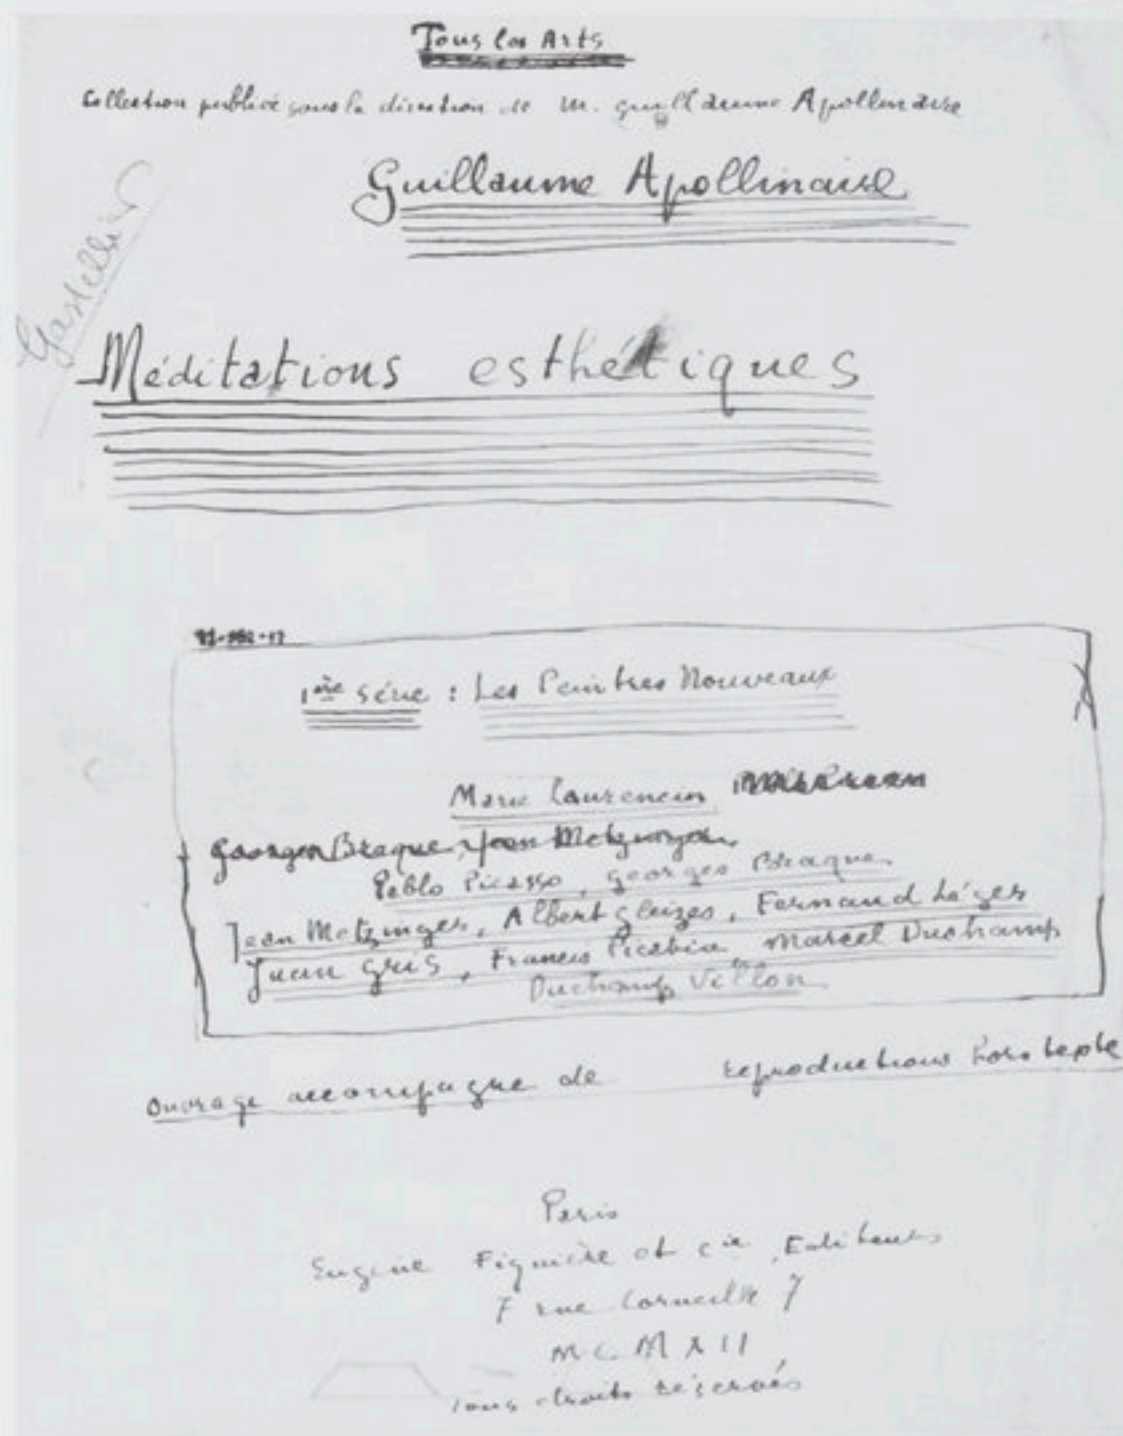 Tous les Arts
Collection publiée sous la direction de M. Guillaume Apollinaire
Guillaume Apollinaire
Gastellier
Méditations esthétiques
1ère série : Les Peintres Nouveaux
Marie Laurencin
Georges Braque, Jean Metzinger
Pablo Picasso, Georges Braque
Jean Metzinger, Albert Gleizes, Fernand Léger
Juan Gris, Francis Picabia, Marcel Duchamp
Duchamp Villon
Ouvrage accompagné de reproductions hors texte
Paris
Eugène Figuière et Cie, Editeurs
7 rue Corneille 7
MCMXII
Tous droits réservés